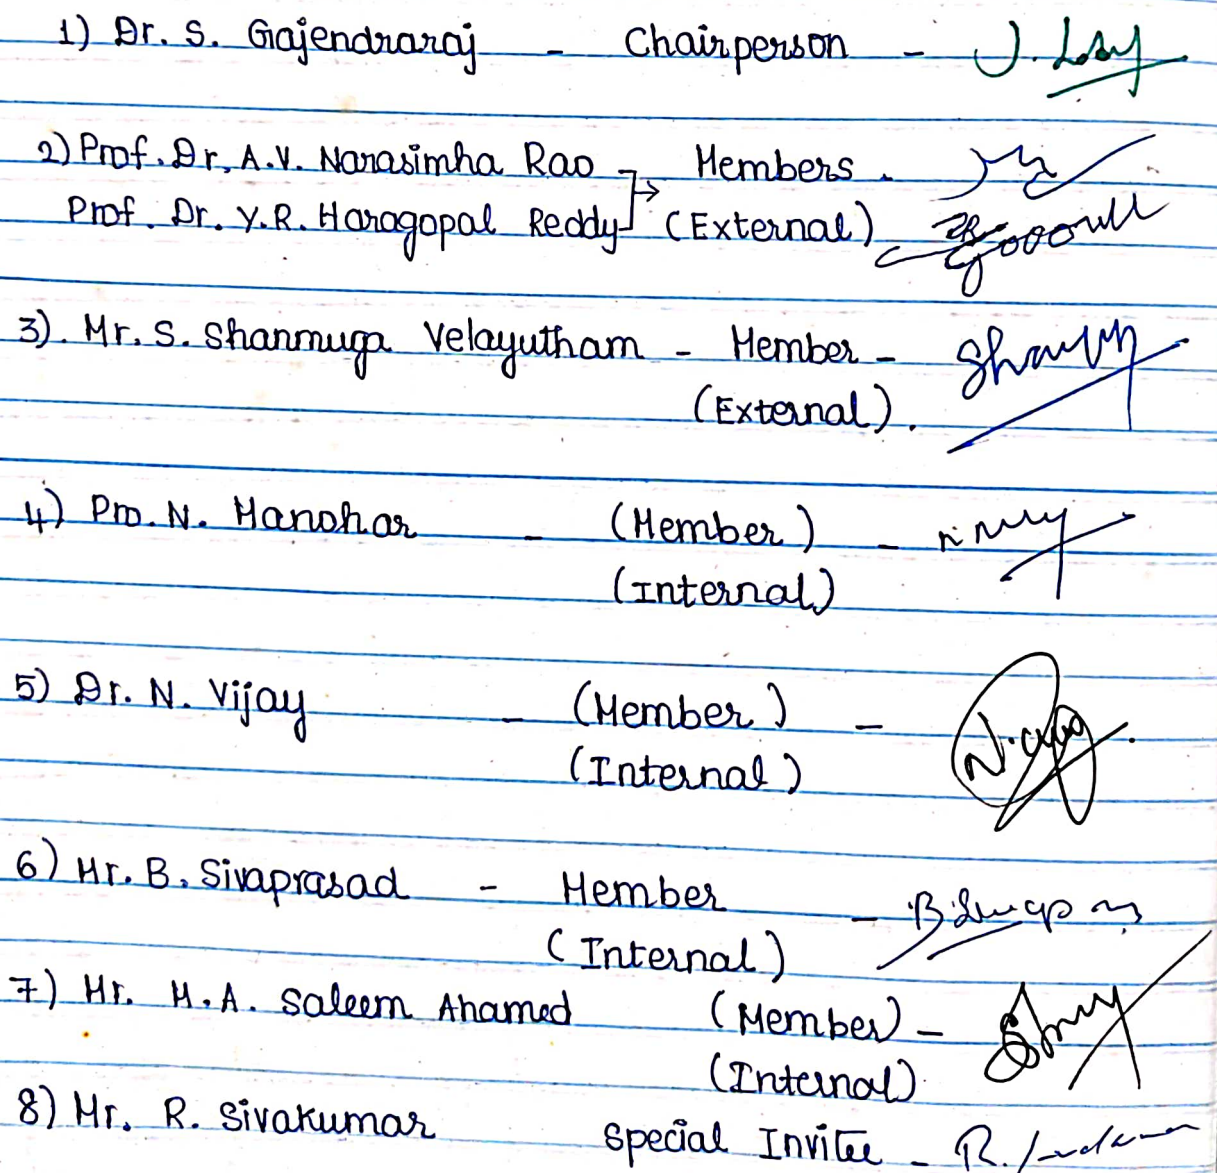 1) Dr. S. Gajendraraj - Chairperson -
2) Prof. Dr. A.V. Narasimha Rao Members -
Prof. Dr. Y.R. Haragopal Reddy → (External)
3). Mr. S. Shanmuga Velayutham - Member -
(External).
4) Pro. N. Manohar - (Member) -
(Internal)
5) Dr. N. Vijay - (Member) -
(Internal)
6) Mr. B. Sivaprasad - Member -
(Internal)
7) Mr. M.A. Saleem Ahamed (Member) -
(Internal)
8) Mr. R. Sivakumar Special Invitee -